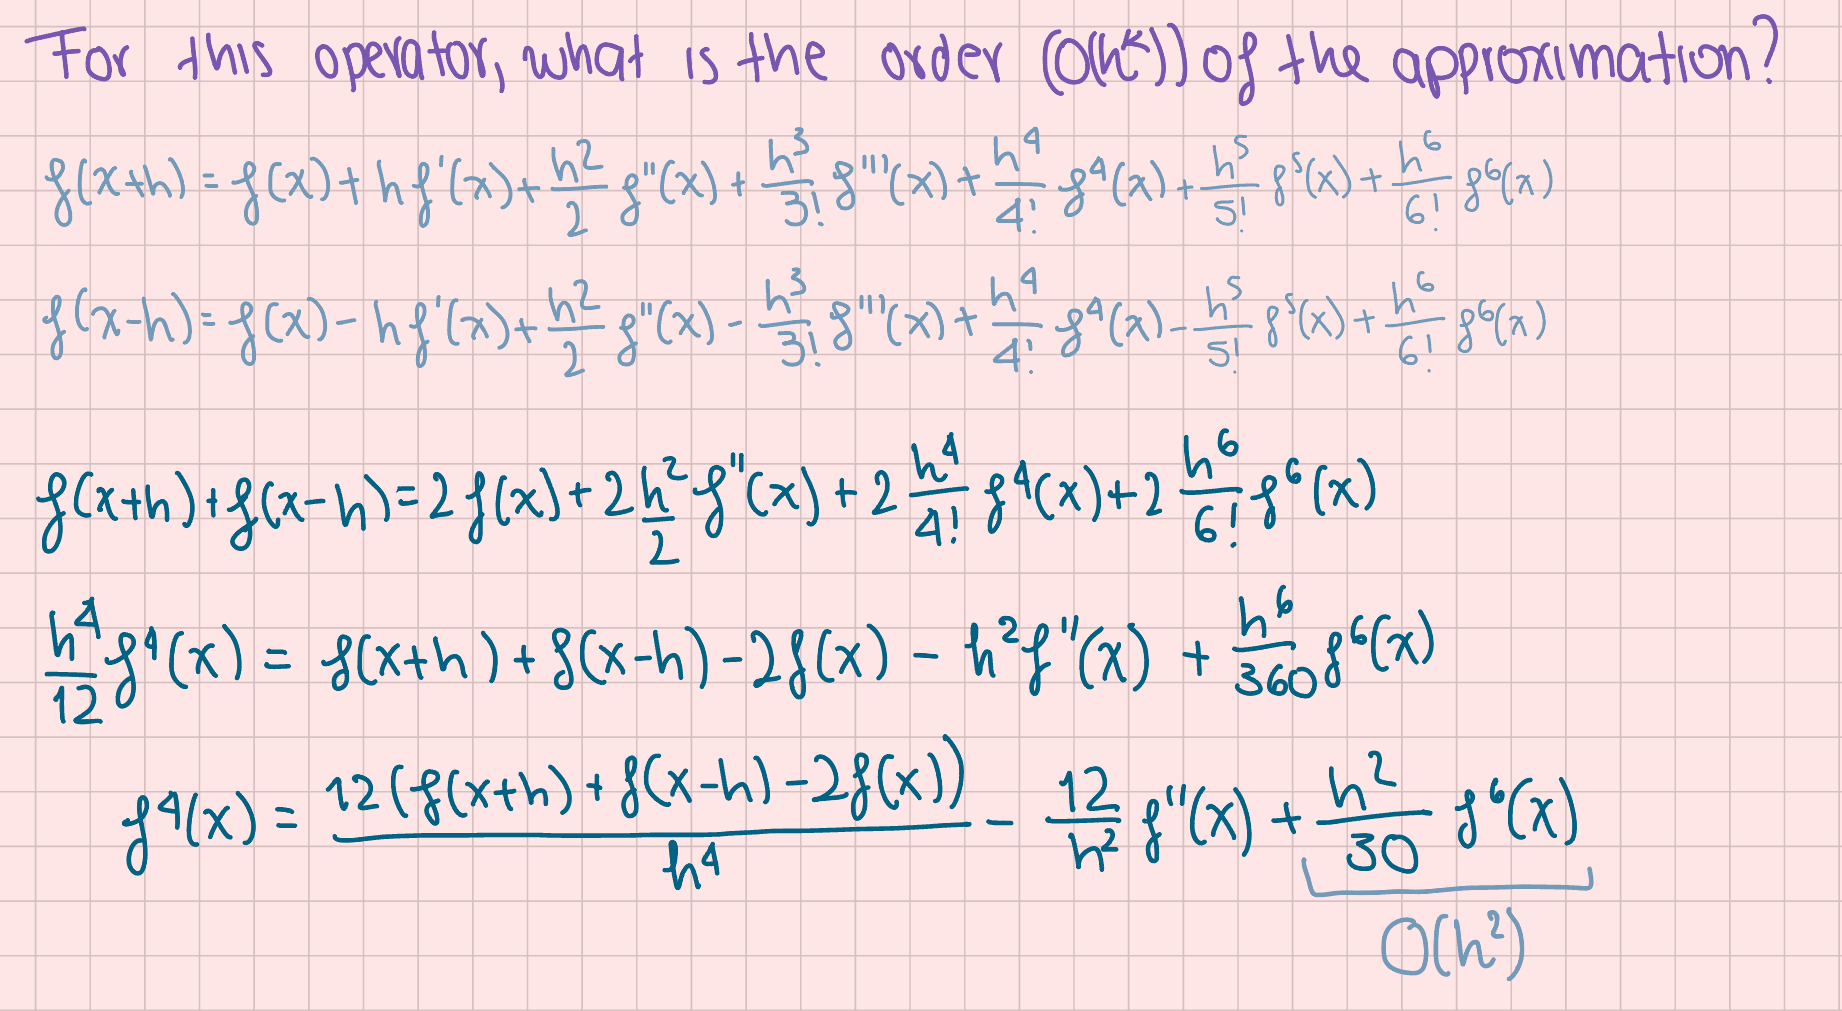 For this operator, what is the order (O(h^k)) of the approximation?
f(x+h) = f(x) + hf'(x) + h^2/2 f''(x) + h^3/3! f'''(x) + h^4/4! f^4(x) + h^5/5! f^5(x) + h^6/6! f^6(x)
f(x-h) = f(x) - hf'(x) + h^2/2 f''(x) - h^3/3! f'''(x) + h^4/4! f^4(x) - h^5/5! f^5(x) + h^6/6! f^6(x)
f(x+h) + f(x-h) = 2f(x) + 2 h^2/2 f''(x) + 2 h^4/4! f^4(x) + 2 h^6/6! f^6(x)
h^4/12 f^4(x) = f(x+h) + f(x-h) - 2f(x) - h^2 f''(x) + h^6/360 f^6(x)
f^4(x) = 12(f(x+h) + f(x-h) - 2f(x))/h^4 - 12/h^2 f''(x) + h^2/30 f^6(x)
O(h^2)